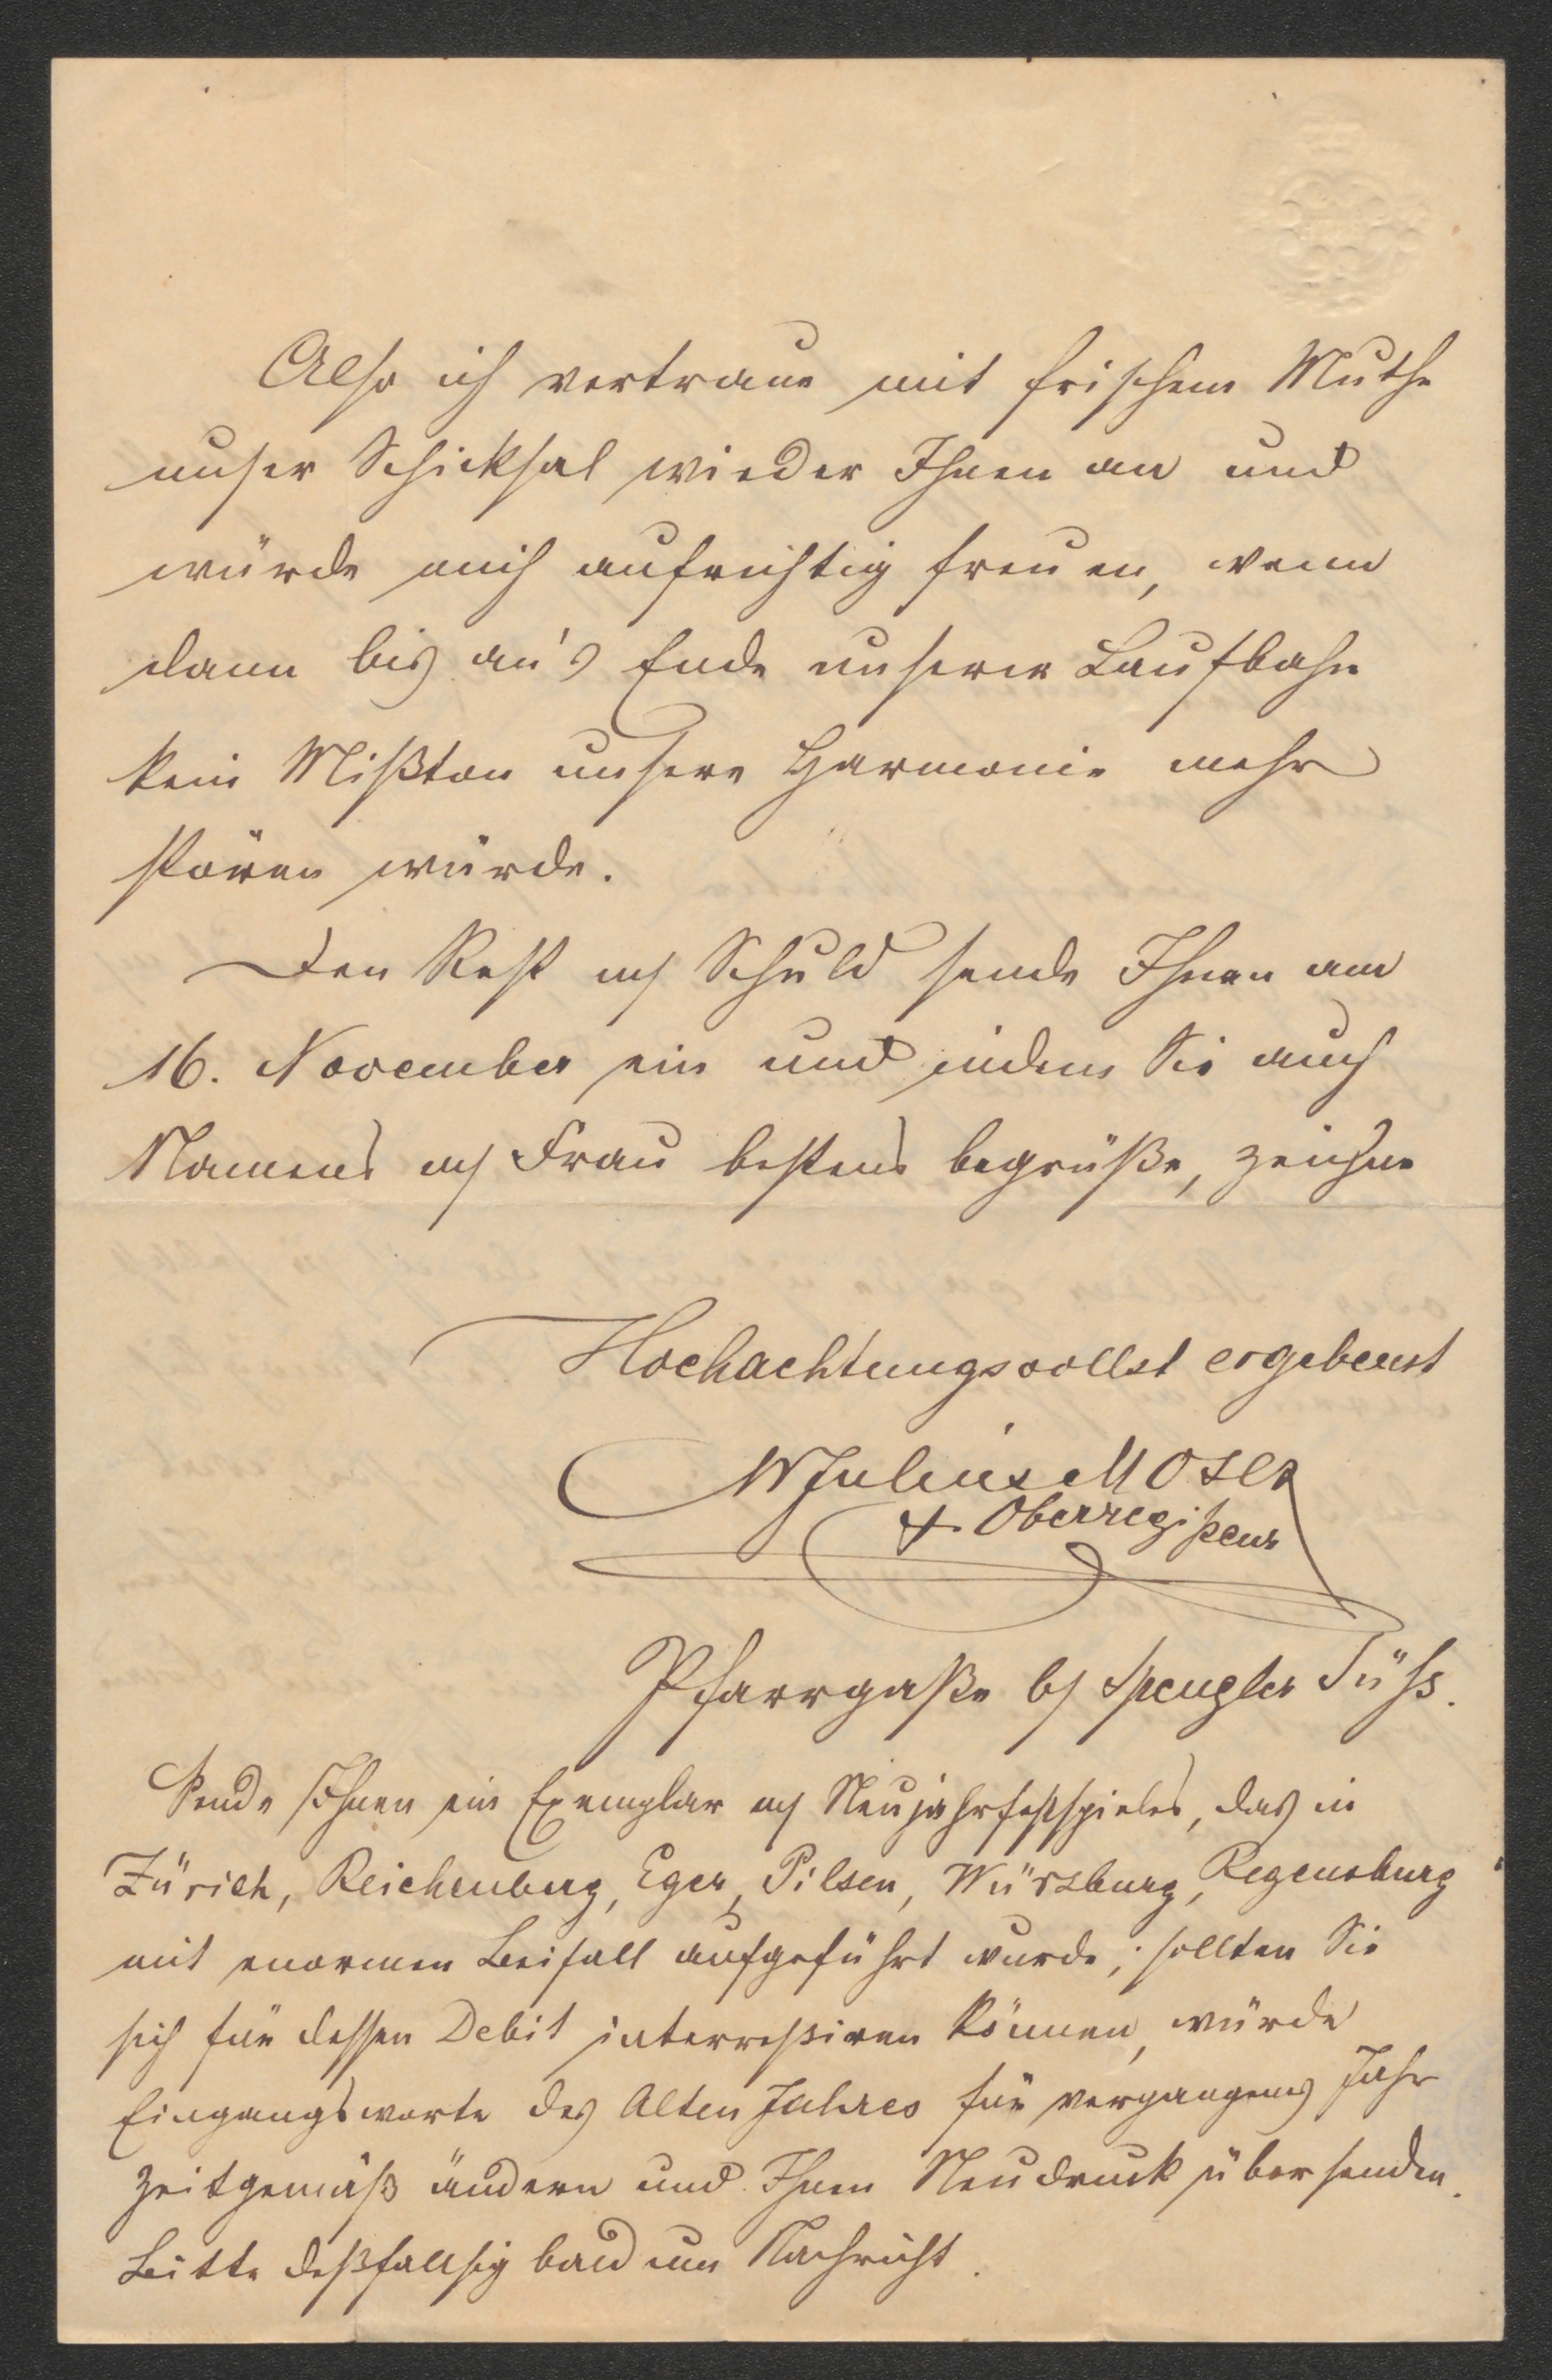 Also ich vertraue mit frischem Muthe
unser Schicksal wieder Ihnen an und
würde mich aufrichtig freuen, wenn
dann bis an's Ende unserer Laufbahn
kein Mißton unsere Harmonie mehr
stören würde.
Den Rest m/ Schuld sende Ihnen am
16. November ein und indem Sie auch
Namens m/ Frau bestens begrüße, zeichne
Hochachtungsvollst ergebenst
WJulius Moser
Oberregißeur
Pfarrgaße b/ Spengler Süß.
Sende Ihnen ein Exemplar m/ Neujahrfestspieles, das in
Zürich, Reichenberg, Eger, Pilsen, Würzburg, Regensburg
mit enormen Beifall aufgeführt wurde; sollten Sie
sich für dessen Debit interreßiren können, würde
Eingangsworte des Alten Jahres für vergangenes Jahr
zeitgemäß ändern und Ihnen Neudruck übersenden.
Bitte deßfallsig bald um Nachricht.